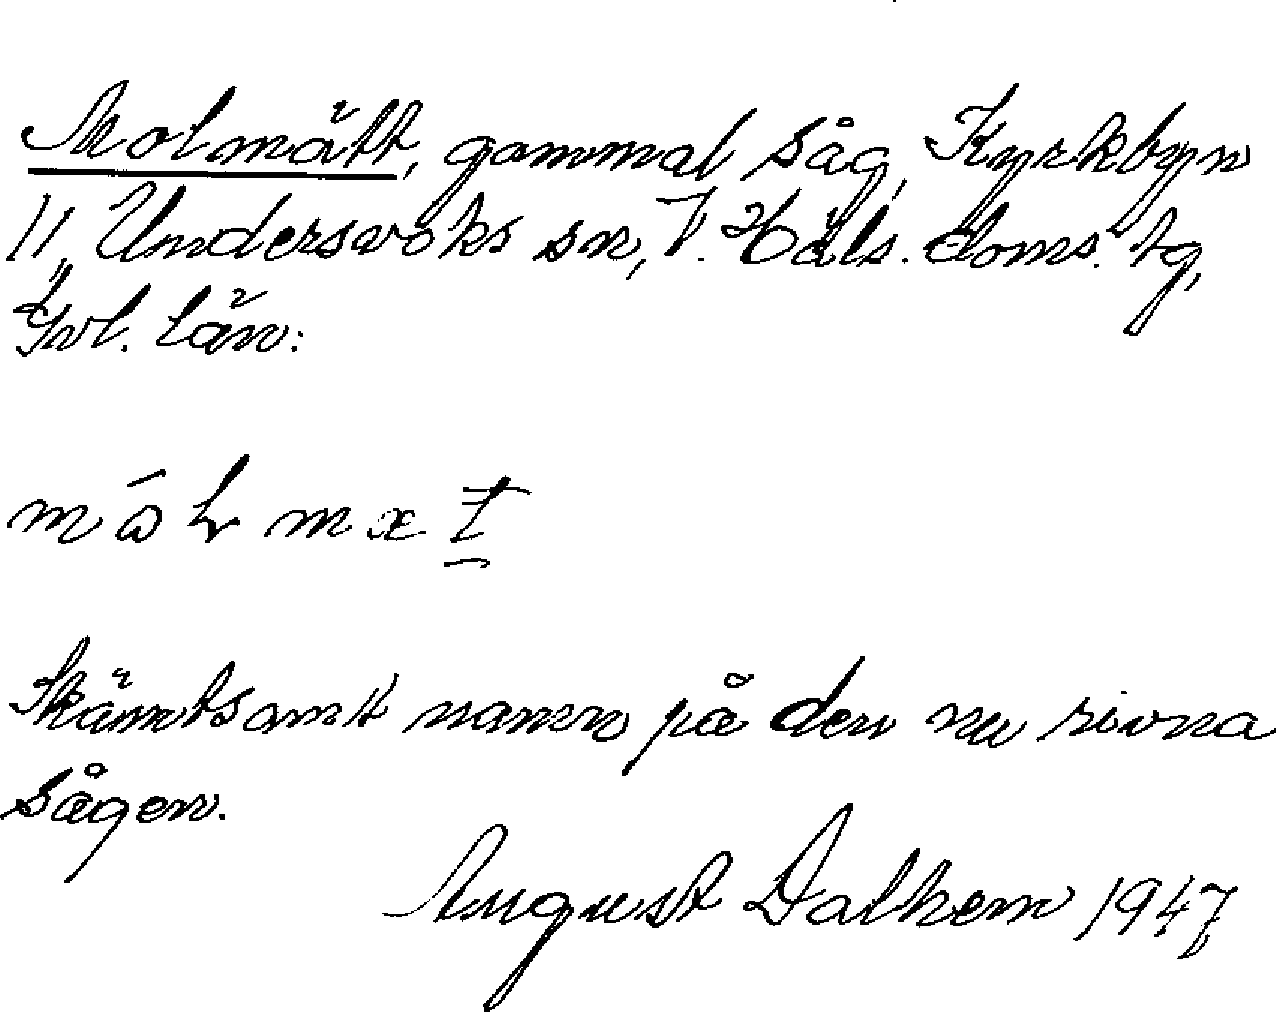 Molmätt, gammal såg, Kyrkbyn
11, Undersvoks sn, V. Häls. doms. tg,
Gvl. län:
Skämtsamt namn på den nu rivna
sågen.
August Dalhem 1947